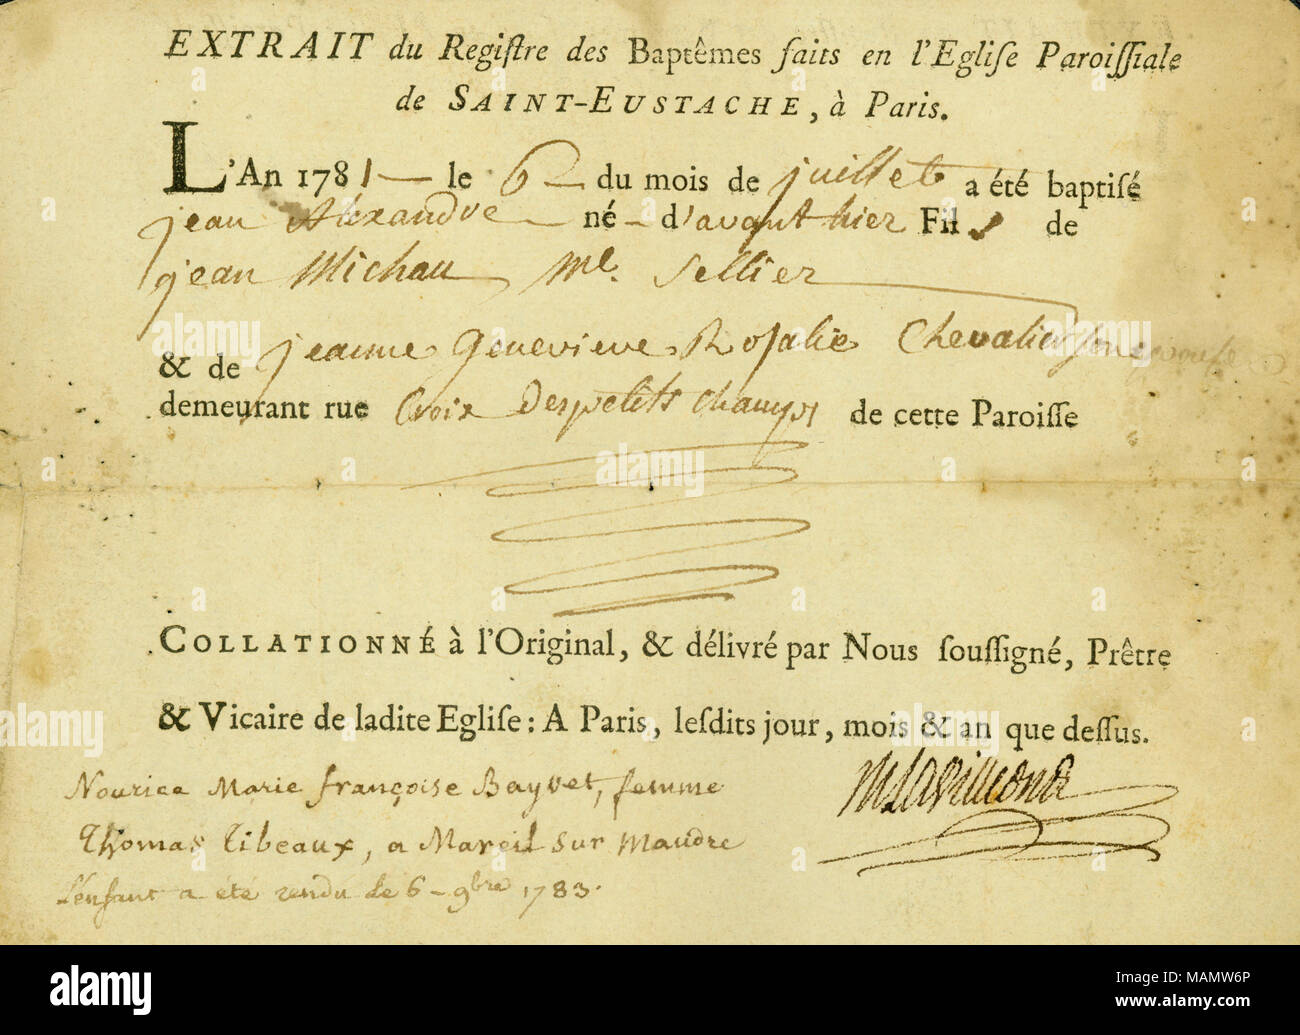 EXTRAIT du Regiſtre des Baptêmes faits en l'Egliſe Paroiſſiale
de SAINT-EUSTACHE, à Paris.
L'An 1781 — le 6 — du mois de juillet a été baptiſé
jean Alexandre — né — d'avant hier Fils de
jean Michau Me. Sellier
& de jeanne Genevieve Roſalie Chevalier son epouse
demeurant rue Croix Des petits champs de cette Paroiſſe
COLLATIONNÉ à l'Original, & délivré par Nous ſouſſigné, Prêtre
& Vicaire de ladite Egliſe: A Paris, leſdits jour, mois & an que deſſus.
Nourice Marie françoise Bayvet, femme
Thomas Tibeaux, a Mareil sur Maudre
L'enfant a été rendu le 6 - 9bre 1783.
alamy
Image ID: MAMW6P
www.alamy.com